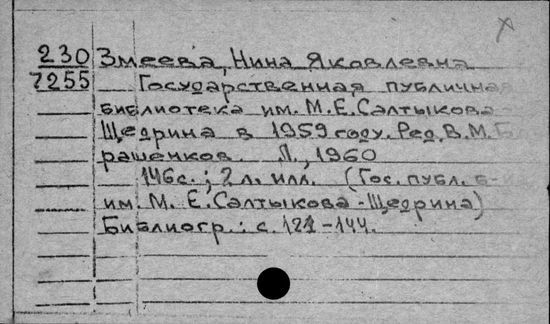 230 Змеева, Нина Яковлевна
7255 Государственная публичная
библиотека им. М.Е. Салтыкова-
Щедрина в 1959 году. Ред. В.М.
рашенков. Л., 1960
146с.; 2 л. илл. (Гос. публ. б-
им. М. Е. Салтыкова-Щедрина)
Библиогр.: с. 121-144.